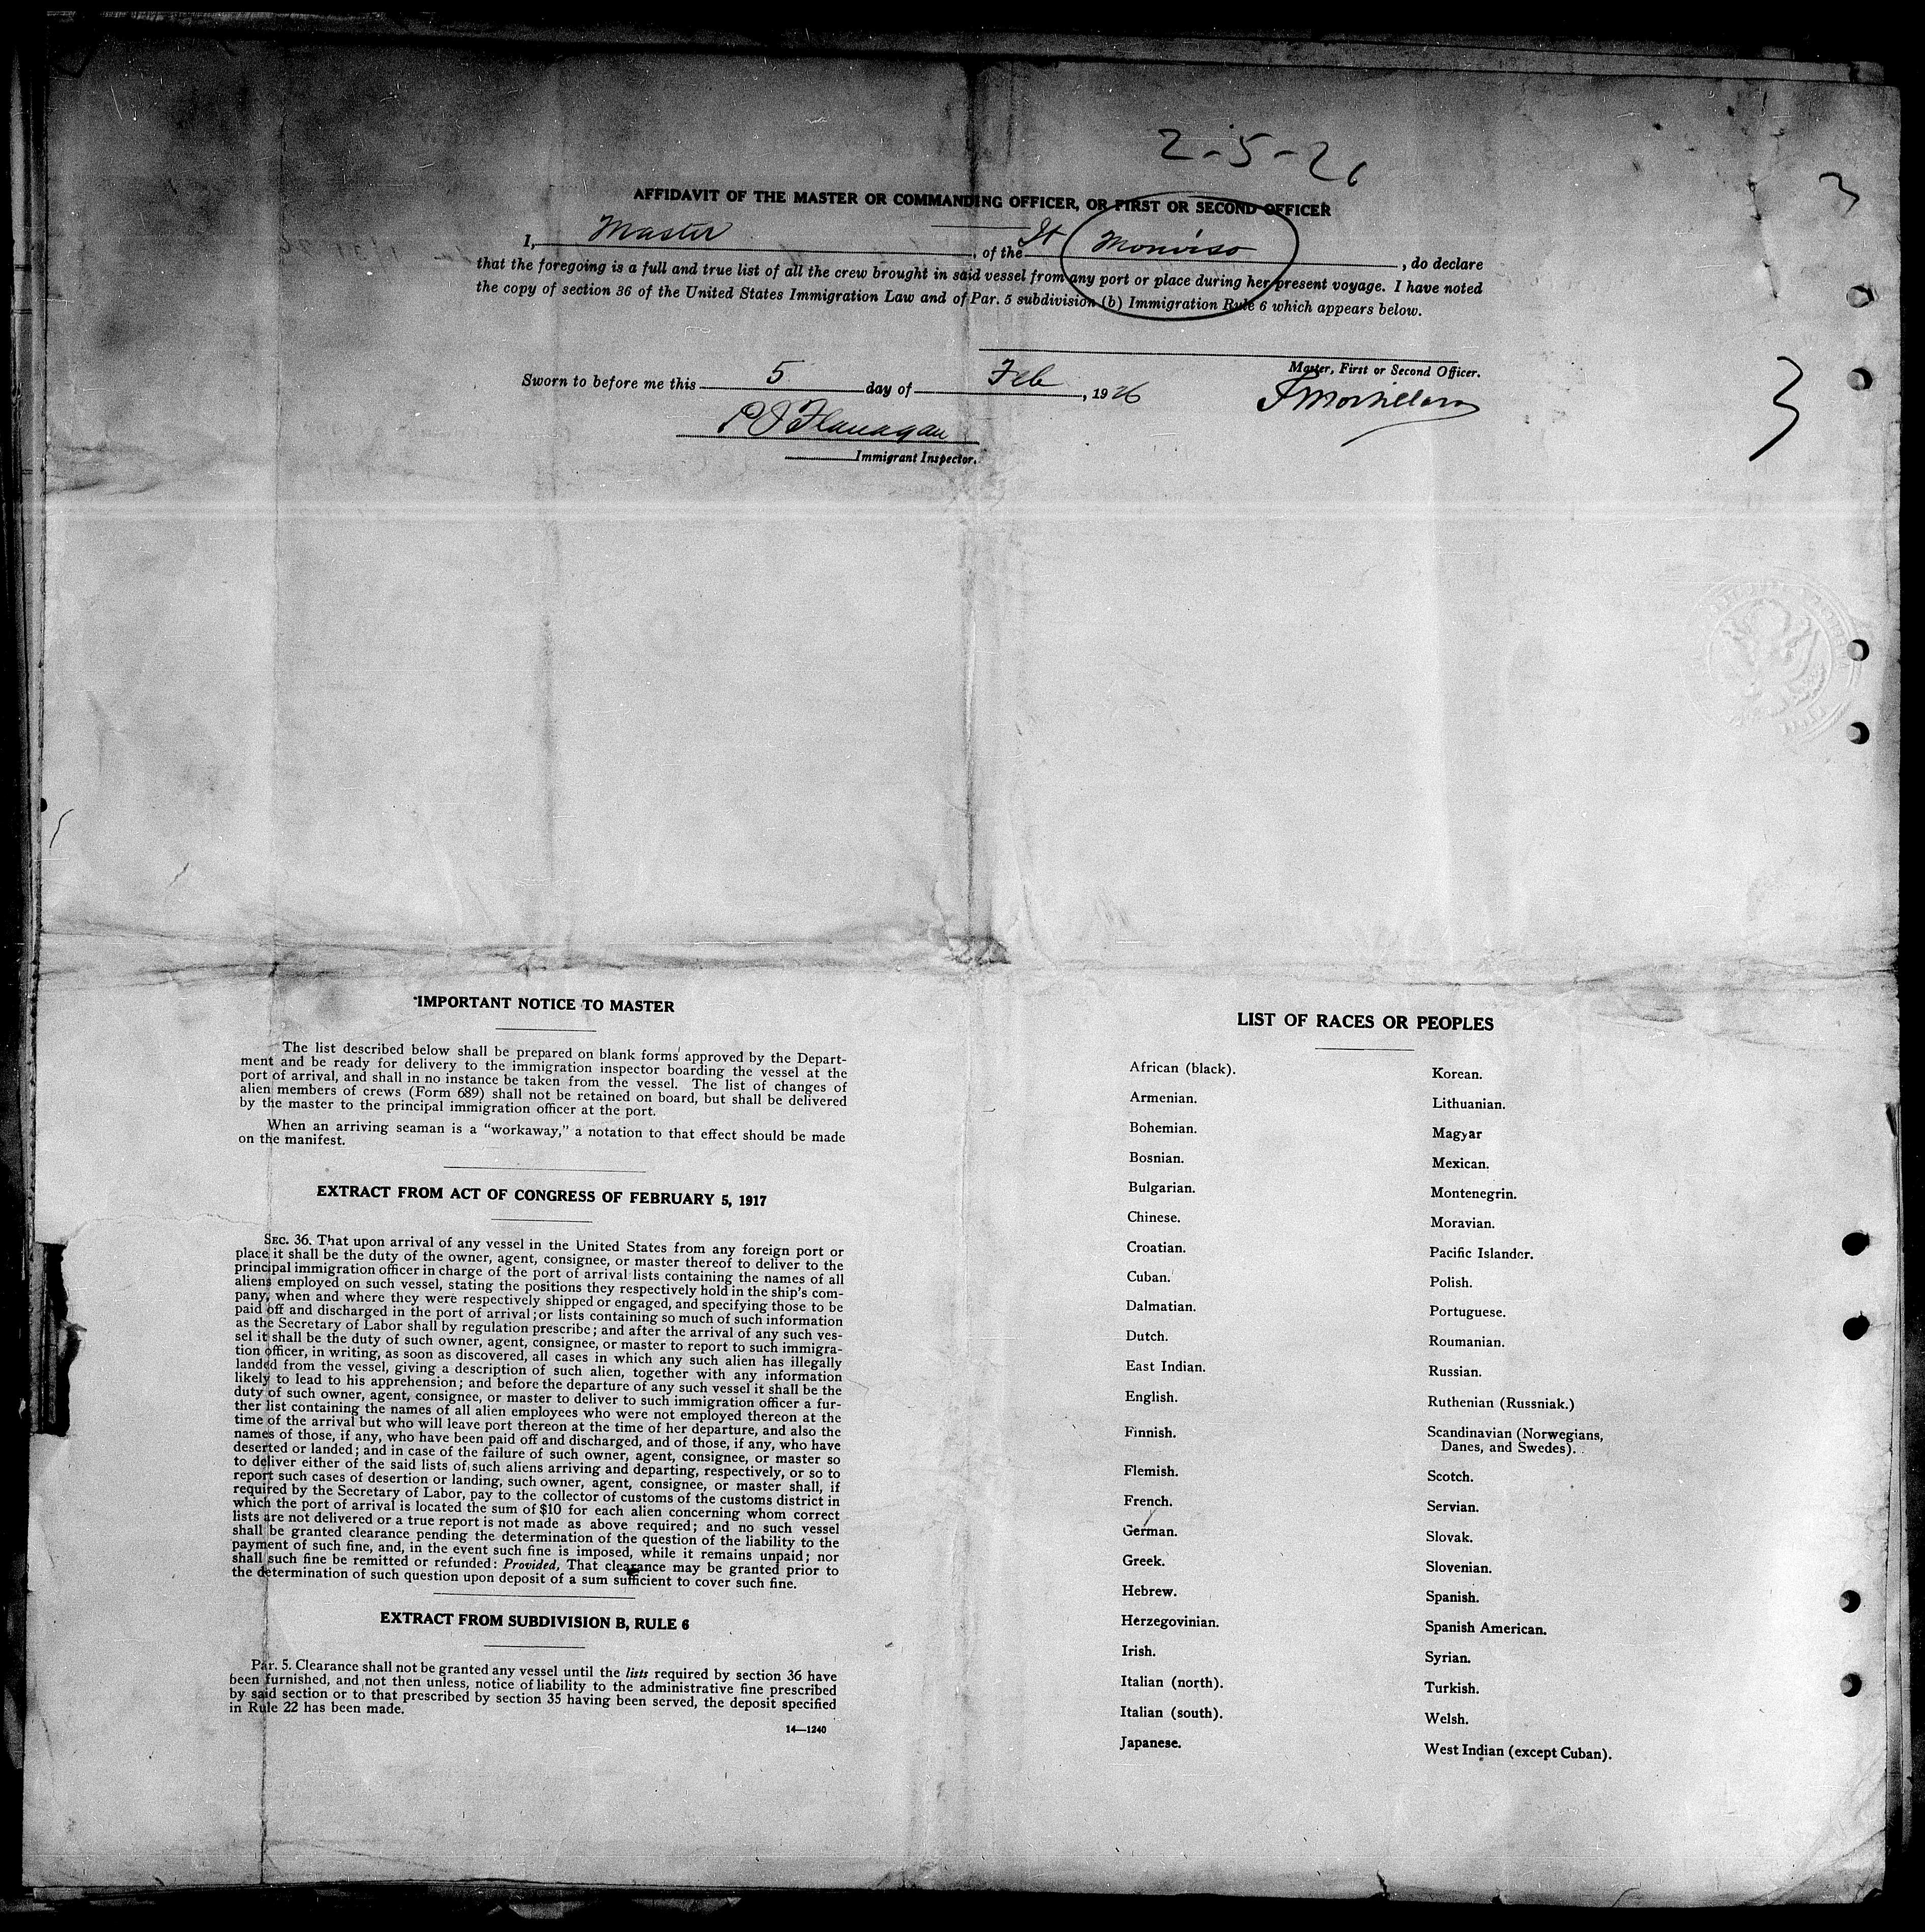 2-5-26
3
AFFIDAVIT OF THE MASTER OR COMMANDING OFFICER, OR FIRST OR SECOND OFFICER
I, Master, of the It Monviso, do declare
that the foregoing is a full and true list of all the crew brought in said vessel from any port or place during her present voyage. I have noted
the copy of section 36 of the United States Immigration Law and of Par. 5 subdivision (b) Immigration Rule 6 which appears below.
Master, First or Second Officer.
Sworn to before me this 5 day of Feb, 1926
3
P J Flanagan
Immigrant Inspector.
IMPORTANT NOTICE TO MASTER
The list described below shall be prepared on blank forms approved by the Depart-
ment and be ready for delivery to the immigration inspector boarding the vessel at the
port of arrival, and shall in no instance be taken from the vessel. The list of changes of
alien members of crews (Form 689) shall not be retained on board, but shall be delivered
by the master to the principal immigration officer at the port.
When an arriving seaman is a "workaway," a notation to that effect should be made
on the manifest.
EXTRACT FROM ACT OF CONGRESS OF FEBRUARY 5, 1917
SEC. 36. That upon arrival of any vessel in the United States from any foreign port or
place it shall be the duty of the owner, agent, consignee, or master thereof to deliver to the
principal immigration officer in charge of the port of arrival lists containing the names of all
aliens employed on such vessel, stating the positions they respectively hold in the ship's com-
pany, when and where they were respectively shipped or engaged, and specifying those to be
paid off and discharged in the port of arrival; or lists containing so much of such information
as the Secretary of Labor shall by regulation prescribe; and after the arrival of any such ves-
sel it shall be the duty of such owner, agent, consignee, or master to report to such immigra-
tion officer, in writing, as soon as discovered, all cases in which any such alien has illegally
landed from the vessel, giving a description of such alien, together with any information
likely to lead to his apprehension; and before the departure of any such vessel it shall be the
duty of such owner, agent, consignee, or master to deliver to such immigration officer a fur-
ther list containing the names of all alien employees who were not employed thereon at the
time of the arrival but who will leave port thereon at the time of her departure, and also the
names of those, if any, who have been paid off and discharged, and of those, if any, who have
deserted or landed; and in case of the failure of such owner, agent, consignee, or master so
to deliver either of the said lists of such aliens arriving and departing, respectively, or so to
report such cases of desertion or landing, such owner, agent, consignee, or master shall, if
required by the Secretary of Labor, pay to the collector of customs of the customs district in
which the port of arrival is located the sum of $10 for each alien concerning whom correct
lists are not delivered or a true report is not made as above required; and no such vessel
shall be granted clearance pending the determination of the question of the liability to the
payment of such fine, and, in the event such fine is imposed, while it remains unpaid; nor
shall such fine be remitted or refunded: Provided, That clearance may be granted prior to
the determination of such question upon deposit of a sum sufficient to cover such fine.
EXTRACT FROM SUBDIVISION B, RULE 6
Par. 5. Clearance shall not be granted any vessel until the lists required by section 36 have
been furnished, and not then unless, notice of liability to the administrative fine prescribed
by said section or to that prescribed by section 35 having been served, the deposit specified
in Rule 22 has been made.
14—1240
LIST OF RACES OR PEOPLES
African (black).
Armenian.
Bohemian.
Bosnian.
Bulgarian.
Chinese.
Croatian.
Cuban.
Dalmatian.
Dutch.
East Indian.
English.
Finnish.
Flemish.
French.
German.
Greek.
Hebrew.
Herzegovinian.
Irish.
Italian (north).
Italian (south).
Japanese.
Korean.
Lithuanian.
Magyar
Mexican.
Montenegrin.
Moravian.
Pacific Islander.
Polish.
Portuguese.
Roumanian.
Russian.
Ruthenian (Russniak.)
Scandinavian (Norwegians,
Danes, and Swedes).
Scotch.
Servian.
Slovak.
Slovenian.
Spanish.
Spanish American.
Syrian.
Turkish.
Welsh.
West Indian (except Cuban).